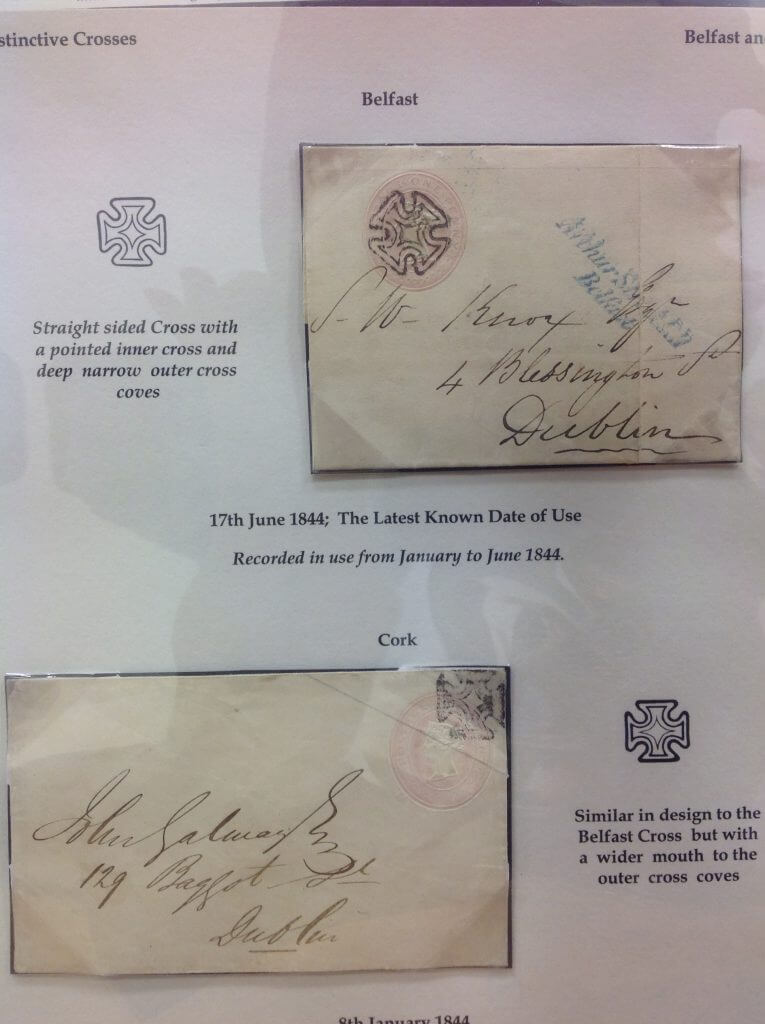 stinctive Crosses
Belfast an
Belfast
Straight sided Cross with
a pointed inner cross and
deep narrow outer cross
coves
ONE
Arthur
S- W- Knox Esqr
4 Blessington St
Dublin
17th June 1844; The Latest Known Date of Use
Recorded in use from January to June 1844.
Cork
John Galway Esq
129 Baggot St
Dublin
Similar in design to the
Belfast Cross but with
a wider mouth to the
outer cross coves
8th January 1844